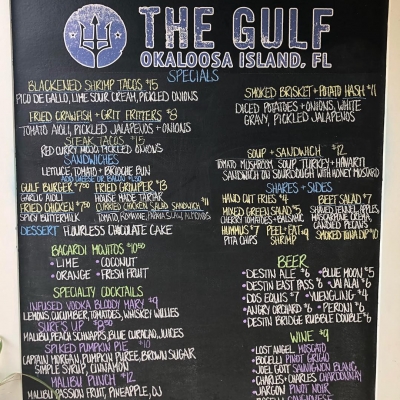 THE GULF
OKALOOSA ISLAND, FL
SPECIALS
BLACKENED SHRIMP TACOS $15
PICO DE GALLO, LIME SOUR CREAM, PICKLED ONIONS
FRIED CRAWFISH + GRIT FRITTERS $8
TOMATO AIOLI, PICKLED JALAPENOS + ONIONS
STEAK TACOS $15
RED CURRY MOJO, PICKLED ONIONS
SMOKED BRISKET + POTATO HASH $11
DICED POTATOES + ONIONS, WHITE
GRAVY, PICKLED JALAPENOS
SANDWICHES
LETTUCE, TOMATO + BRIOCHE BUN
ADD CHEESE OR BACON $1.50
GULF BURGER $7.50 FRIED GROUPER $13
GARLIC AIOLI HOUSE MADE TARTAR
FRIED CHICKEN $7.50 CURRIED CHICKEN SALAD SANDWICH $11
SPICY BUTTERMILK TOMATO, ROMAINE,
DESSERT FLOURLESS CHOCOLATE CAKE
SOUP + SANDWICH $12
TOMATO MUSHROOM SOUP, TURKEY + HAVARTI
SANDWICH ON SOURDOUGH WITH HONEY MUSTARD
SHARES + SIDES
HAND CUT FRIES $4 BEET SALAD $7
MIXED GREEN SALAD $5 SHAVED FENNEL, APPLES
CHERRY TOMATOES + BALSAMIC MASCARPONE CREAM,
HUMMUS $7 PEEL + EAT $9 CANDIED PECANS
PITA CHIPS SHRIMP SMOKED TUNA DIP $10
BACARDI MOJITOS $10.50
• LIME • COCONUT
• ORANGE • FRESH FRUIT
BEER
• DESTIN ALE $6 • BLUE MOON $5
• DESTIN EAST PASS $6 • JAI ALAI $6
• DOS EQUIS $7 • YUENGLING $4
• ANGRY ORCHARD $6 • PERONI $6
• DESTIN BRIDGE RUBBLE DOUBLE $6
SPECIALTY COCKTAILS
INFUSED VODKA BLOODY MARY $9
LEMONS, CUCUMBER, TOMATOES, WHISKEY WILLIES
SURF'S UP $8.50
MALIBU, PEACH SCHNAPPS, BLUE CURACAO, JUICES
SPIKED PUMPKIN PIE $10
CAPTAIN MORGAN, PUMPKIN PUREE, BROWN SUGAR
SIMPLE SYRUP, CINNAMON
MALIBU PUNCH $12
MALIBU PASSION FRUIT, PINEAPPLE, DJ
WINE $9
• LOST ANGEL MOSCATO
• BOCELLI PINOT GRIGIO
• JOEL GOTT SAUVIGNON BLANC
• CHARLES + CHARLES CHARDONNAY
• JARGON PINOT NOIR
• BOCELLI SANGIOVESE